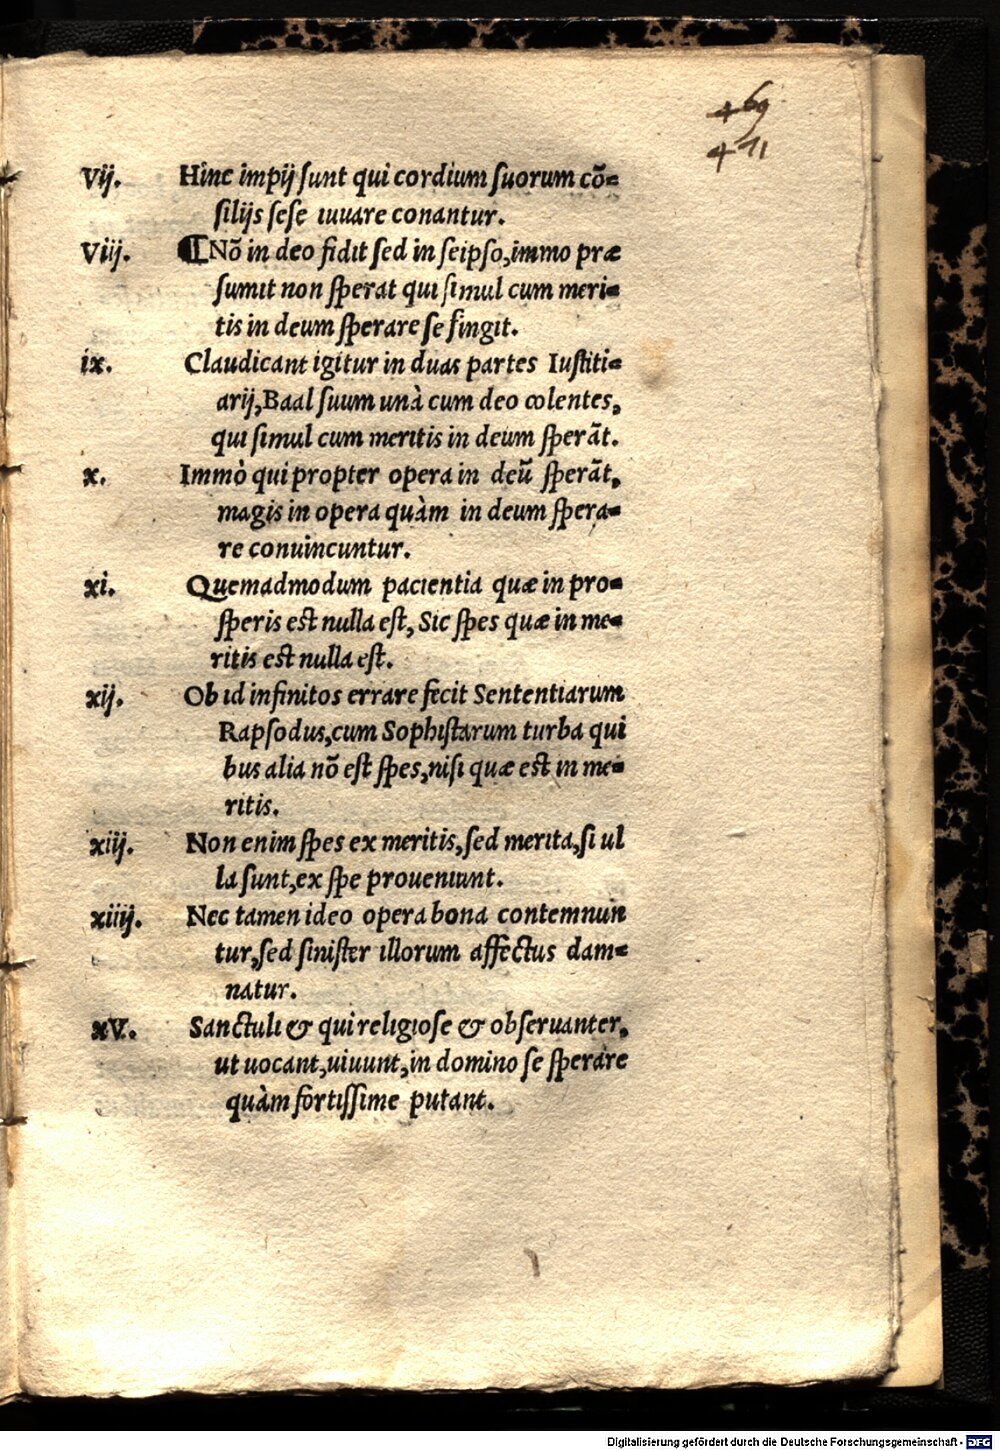 469
471
Vij. Hinc impij sunt qui cordium suorum cõ=
silijs sese iuuare conantur.
Viij. ¶ Nõ in deo fidit sed in seipso, immo præ
sumit non sperat qui simul cum meri=
tis in deum sperare se fingit.
ix. Claudicant igitur in duas partes Iustiti=
arij, Baal suum unà cum deo colentes,
qui simul cum meritis in deum sperãt.
x. Immò qui propter opera in deũ sperãt,
magis in opera quàm in deum spera=
re conuincuntur.
xi. Quemadmodum pacientia quæ in pro=
speris est nulla est, Sic spes quæ in me=
ritis est nulla est.
xij. Ob id infinitos errare fecit Sententiarum
Rapsodus, cum Sophistarum turba qui
bus alia nõ est spes, nisi quæ est in me=
ritis.
xiij. Non enim spes ex meritis, sed merita, si ul
la sunt, ex spe proueniunt.
xiiij. Nec tamen ideo opera bona contemnun
tur, sed sinister illorum affectus dam=
natur.
xV. Sanctuli & qui religiose & obseruanter,
ut uocant, uiuunt, in domino se sperare
quàm fortissime putant.
Digitalisierung gefördert durch die Deutsche Forschungsgemeinschaft - DFG